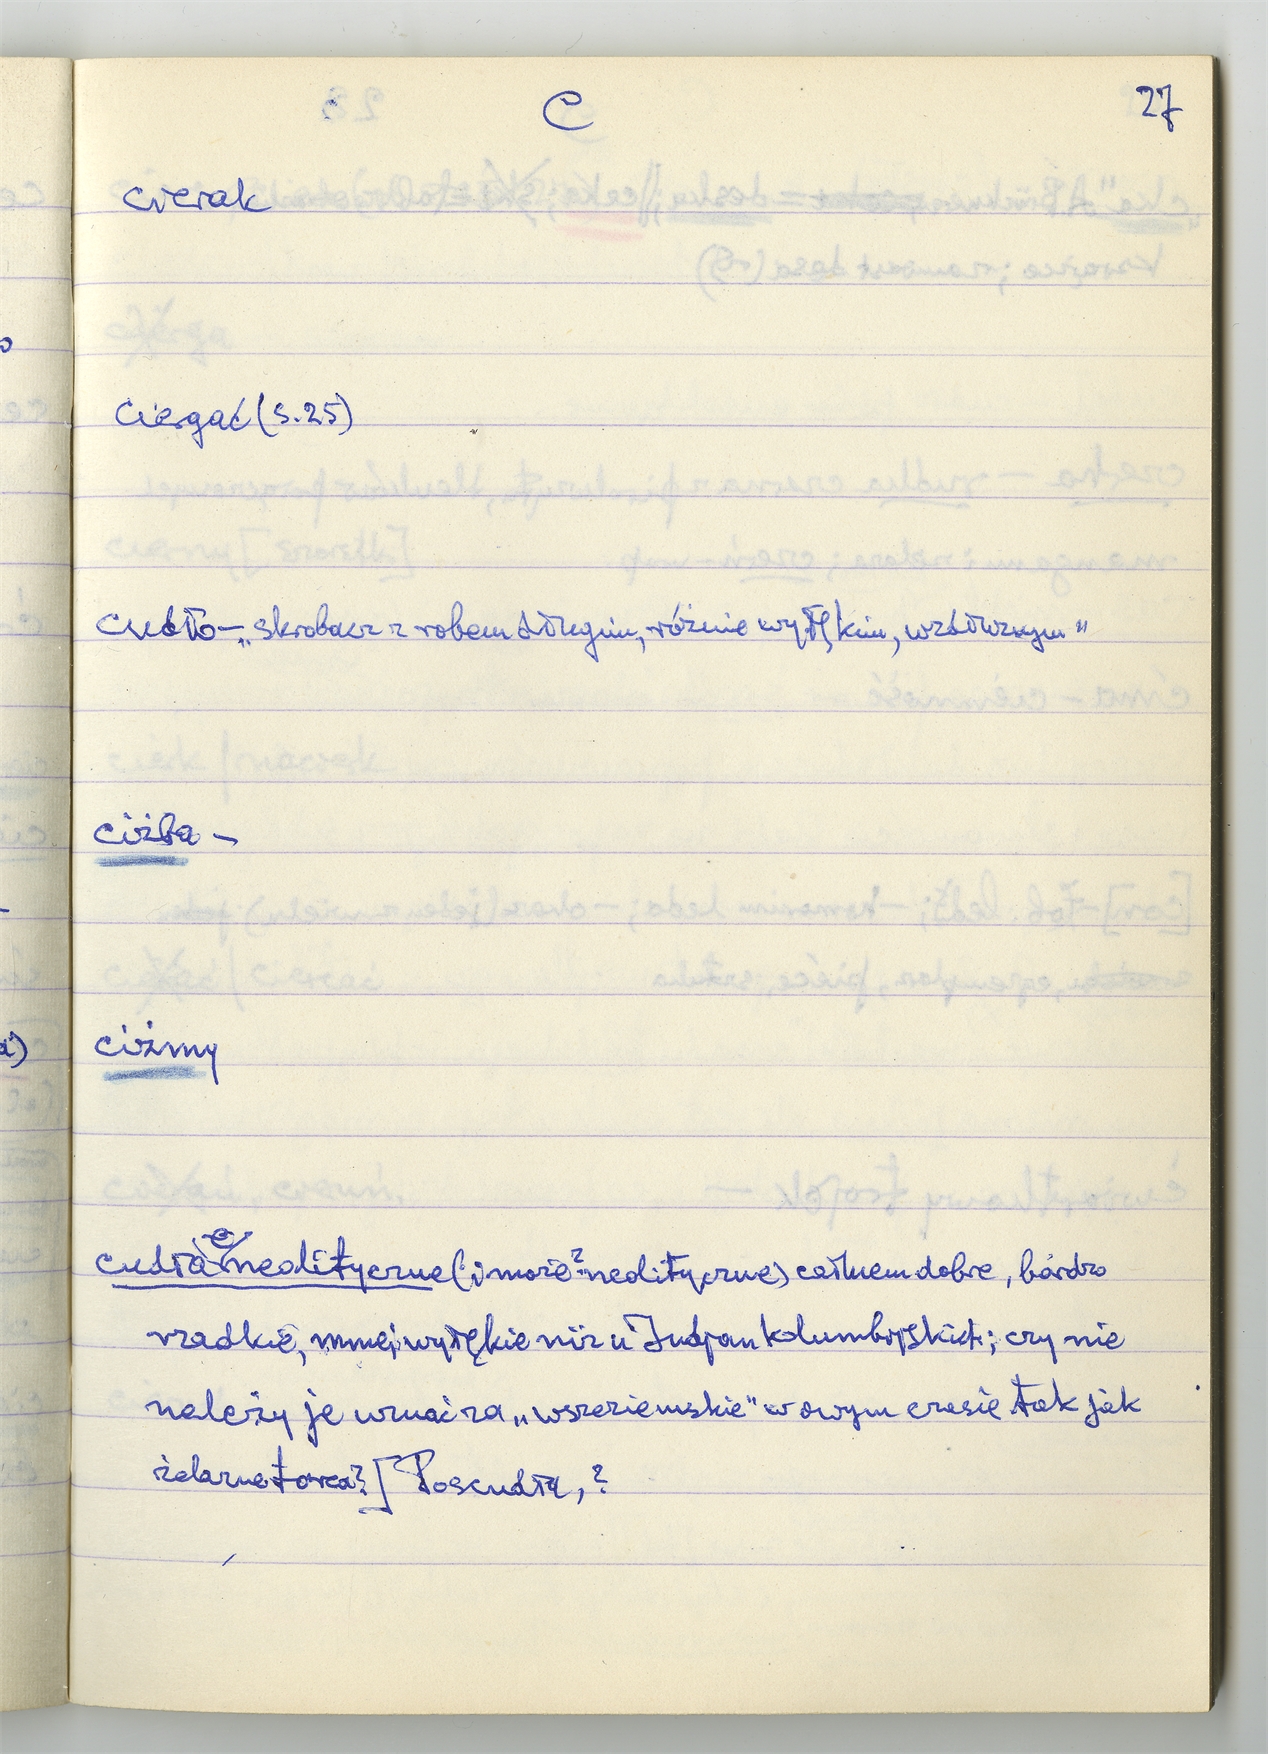 C 27
cierak
ciergać (s. 25)
cudło – „skrobacz z zobem długim, różnie wygłękim, wzdłużnym"
ciżba –
ciżmy
cudła neolityczne (i może? neolityczne) całkiem dobre, bardzo
rzadkie, mniej wygłękie niż u Indjan kolumbijskich; czy nie
należy je uznać za „wszeziemskie" w owym czasie tak jak
żelazne? [Poscudła, ?